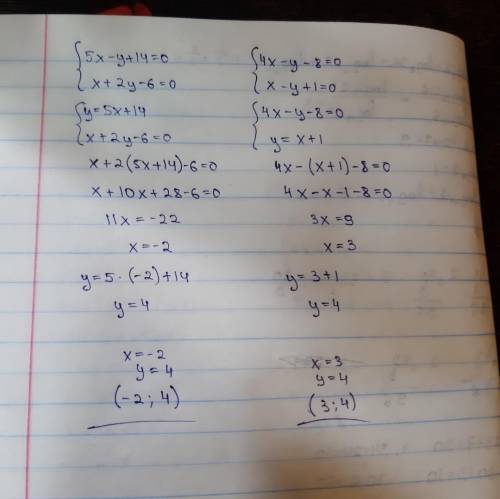 5x-y+14=0
x+2y-6=0
y=5x+14
x+2y-6=0
x+2(5x+14)-6=0
x+10x+28-6=0
11x=-22
x=-2
y=5·(-2)+14
y=4
x=-2
y=4
(-2;4)
4x-y-8=0
x-y+1=0
4x-y-8=0
y=x+1
4x-(x+1)-8=0
4x-x-1-8=0
3x=9
x=3
y=3+1
y=4
x=3
y=4
(3;4)